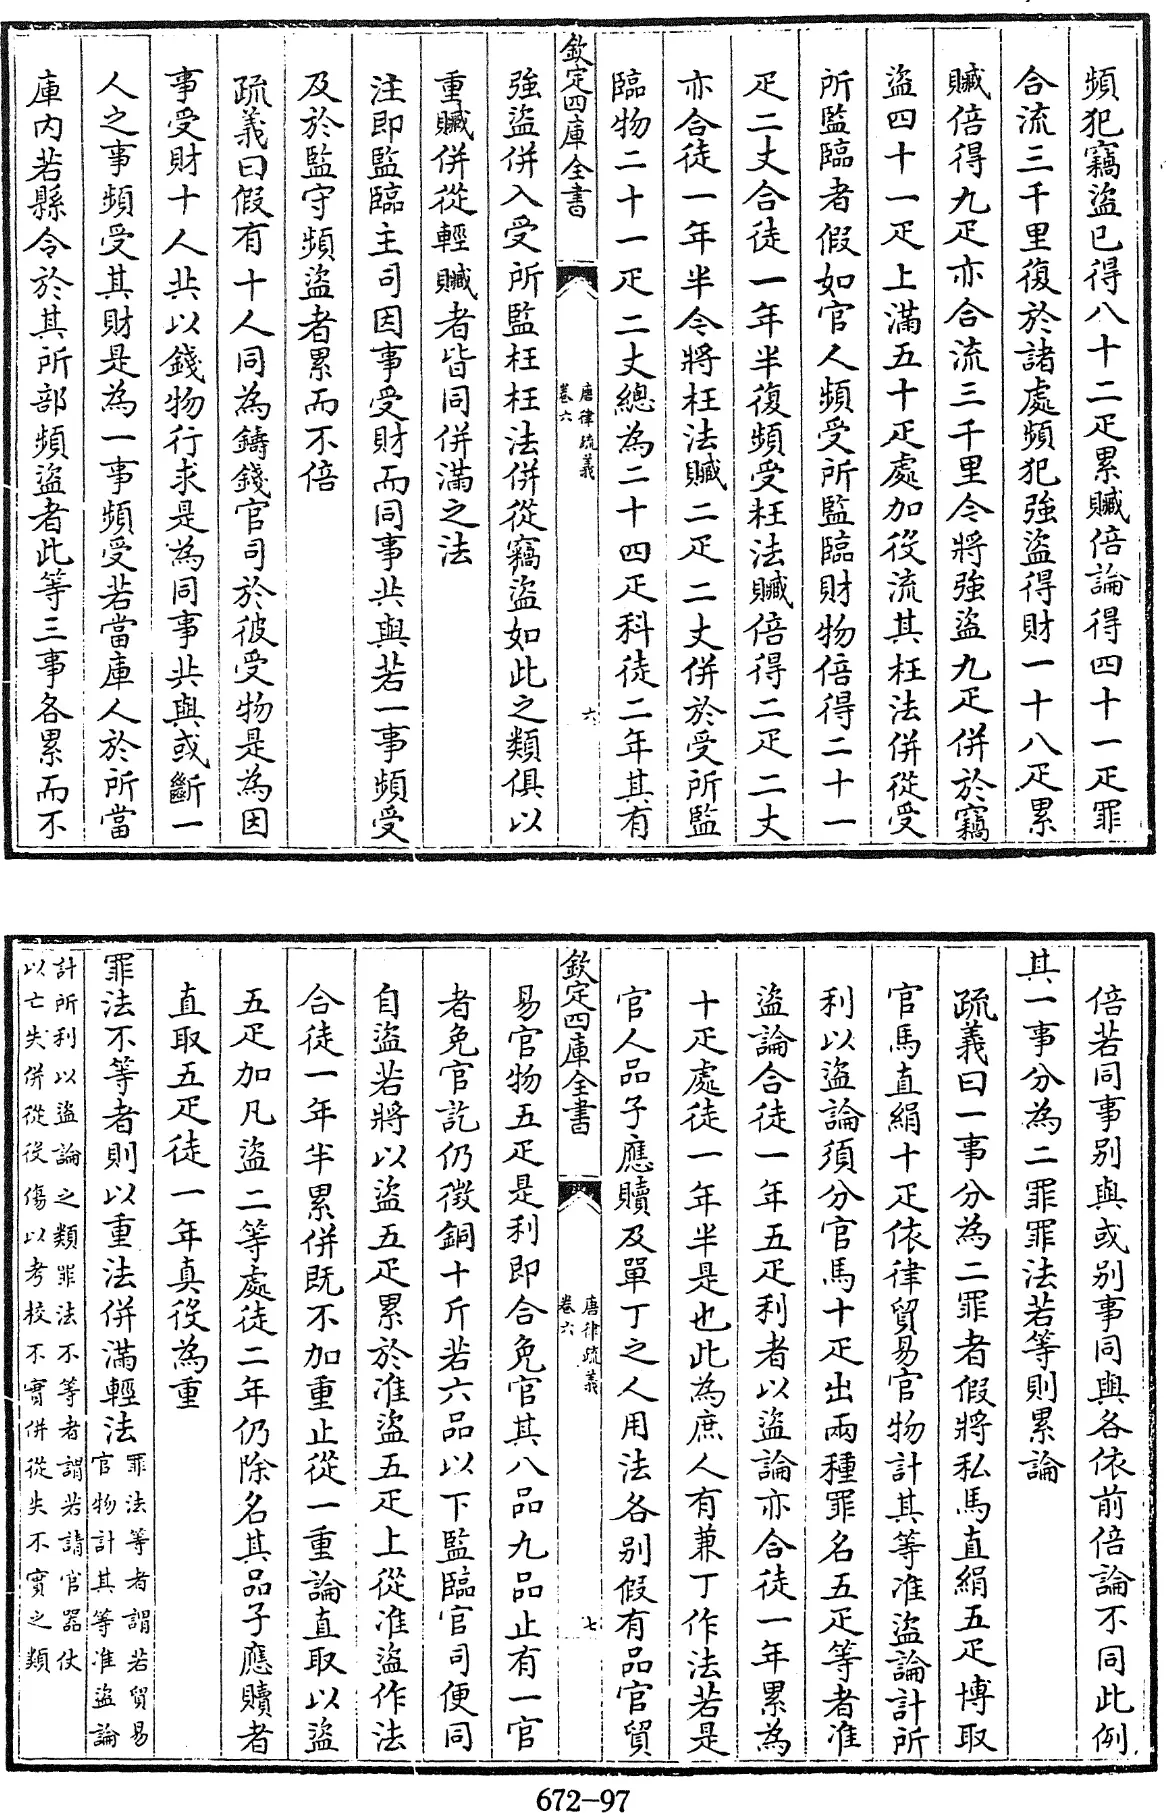 頻犯竊盜已得八十二疋累贓倍論得四十一疋罪
合流三千里復於諸處頻犯強盜得財一十八疋累
贓倍得九疋亦合流三千里令將強盜九疋併於竊
盜四十一疋上滿五十疋處加役流其枉法併從受
所監臨者假如官人頻受所監臨財物倍得二十一
疋二丈合徒一年半復頻受枉法贓倍得二疋二丈
亦合徒一年半令將枉法贓二疋二丈併於受所監
臨物二十一疋二丈總為二十四疋科徒二年其有
欽定四庫全書
唐律疏義
卷六
六
強盜併入受所監枉枉法併從竊盜如此之類俱以
重贓併從輕贓者皆同併滿之法
注即監臨主司因事受財而同事共與若一事頻受
及於監守頻盜者累而不倍
疏義曰假有十人同為鑄錢官司於彼受物是為因
事受財十人共以錢物行求是為同事共與或斷一
人之事頻受其財是為一事頻受若當庫人於所當
庫内若縣令於其所部頻盜者此等三事各累而不
倍若同事别與或别事同與各依前倍論不同此例
其一事分為二罪罪法若等則累論
疏義曰一事分為二罪者假將私馬直絹五疋博取
官馬直絹十疋依律貿易官物計其等准盜論計所
利以盜論須分官馬十疋出兩種罪名五疋等者准
盜論合徒一年五疋利者以盜論亦合徒一年累為
十疋處徒一年半是也此為庶人有兼丁作法若是
官人品子應贖及單丁之人用法各别假有品官貿
欽定四庫全書
唐律疏義
卷六
七
易官物五疋是利即合免官其八品九品止有一官
者免官訖仍徵銅十斤若六品以下監臨官司便同
自盜若將以盜五疋累於准盜五疋上從准盜作法
合徒一年半累併既不加重止從一重論直取以盜
五疋加凡盜二等處徒二年仍除名其品子應贖者
直取五疋徒一年真役為重
罪法不等者則以重法併滿輕法
罪法等者謂若貿易
官物計其等准盜論
計所利以盜論之類罪法不等者謂若請官器仗
以亡失併從毀傷以考校不實併從失不實之類
672-97